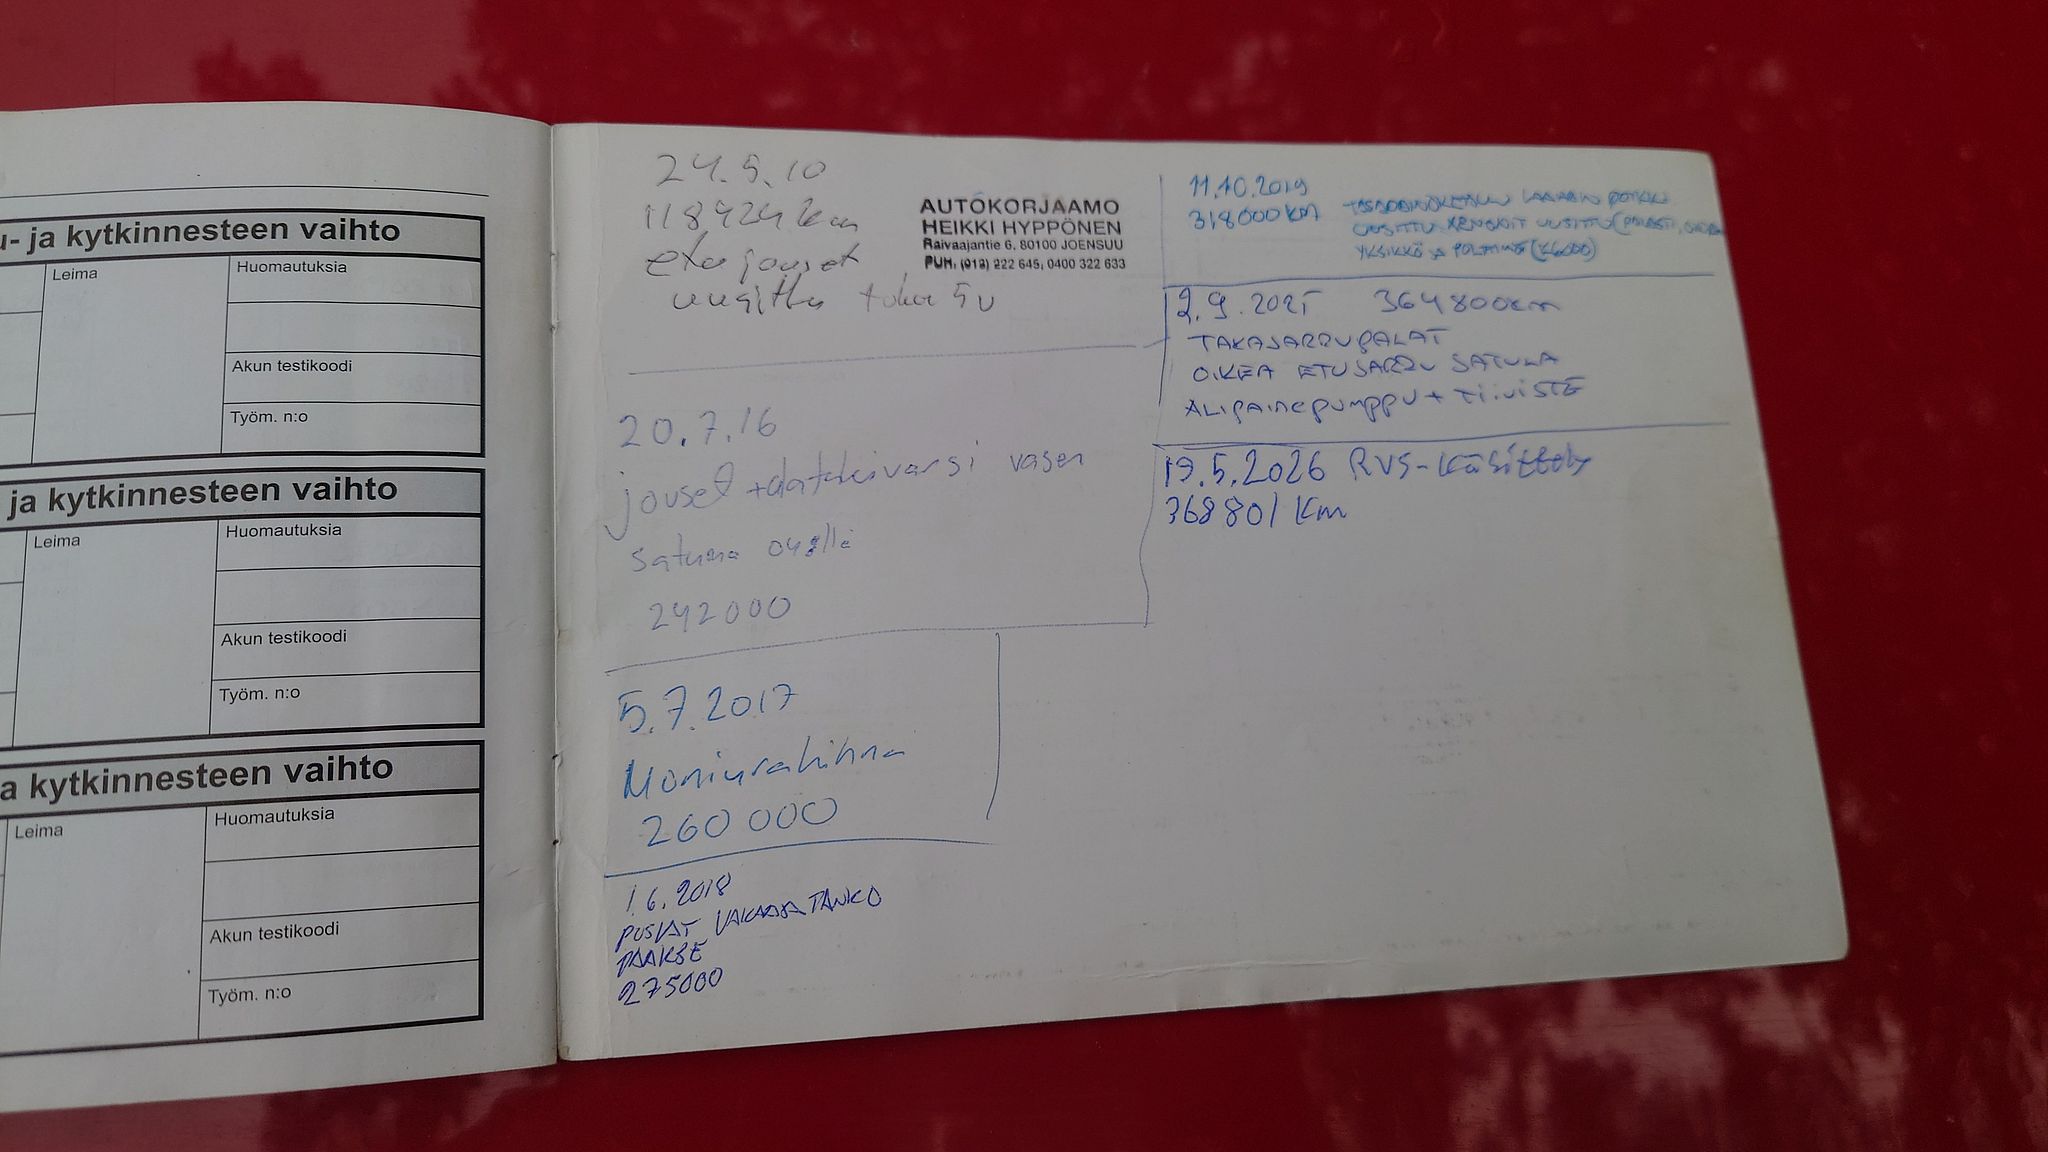 u- ja kytkinnesteen vaihto
Leima
Huomautuksia
Akun testikoodi
Työm. n:o
ja kytkinnesteen vaihto
Leima
Huomautuksia
Akun testikoodi
Työm. n:o
a kytkinnesteen vaihto
Leima
Huomautuksia
Akun testikoodi
Työm. n:o
24.5.10
118424 km
etu jouset
uusittu taka 5v
AUTOKORJAAMO
HEIKKI HYPPÖNEN
Raivaajantie 6, 80100 JOENSUU
PUH. (013) 222 645, 0400 322 633
20.7.16
jouset + vasen
satula
242000
5.7.2017
Moniurahihna
260 000
1.6.2018
PUSLAT VAKAAJATANKO
275000
11.10.2019
318000 KM
UUSITTU
YKSIKKÖ JA
2.9.2025 364800km
TAKAJARRUPALAT
OIKEA ETUJARRU SATULA
ALIPAINEPUMPPU + TIIVISTE
19.5.2026 RVS-Käsittely
368801 Km